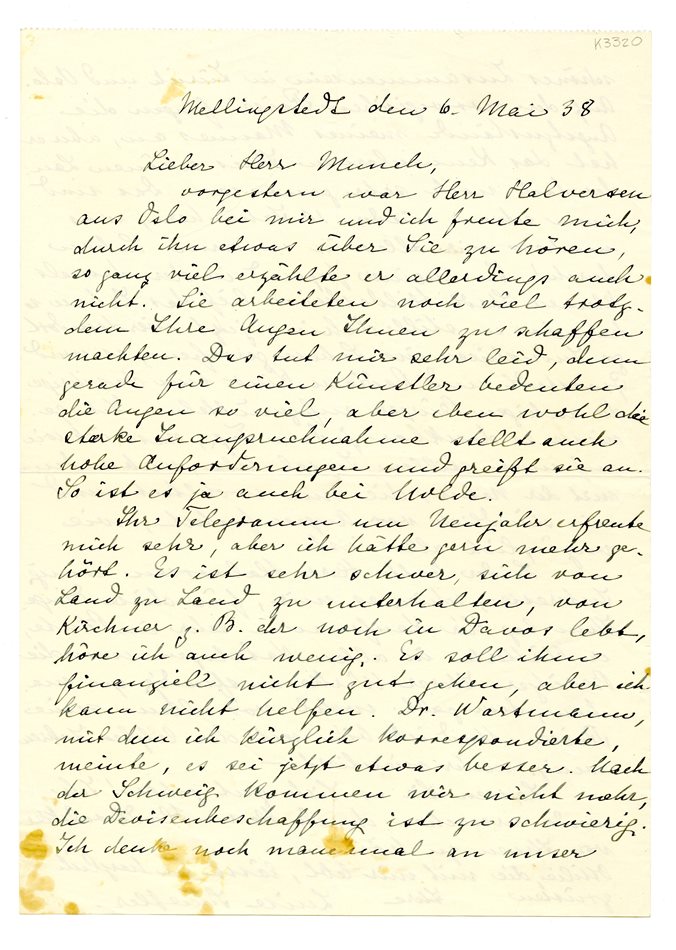 K3320
Mellingstedt den 6. Mai 38
Lieber Herr Munch,
vorgestern war Herr Halversen
aus Oslo bei mir und ich freute mich,
durch ihn etwas über Sie zu hören,
so ganz viel erzählte er allerdings auch
nicht. Sie arbeiteten noch viel trotz-
dem Ihre Augen Ihnen zu schaffen
machten. Das tut mir sehr leid, denn
gerade für einen Künstler bedeuten
die Augen so viel, aber eben wohl die
starke Inanspruchnahme stellt auch
hohe Anforderungen und greift sie an.
So ist es ja auch bei Nolde.
Ihr Telegramm um Neujahr erfreute
mich sehr, aber ich hätte gern mehr ge-
hört. Es ist sehr schwer, sich von
Land zu Land, zu unterhalten, von
Kirchner z. B. der noch in Davos lebt,
höre ich auch wenig. Es soll ihm
finanziell nicht gut gehen, aber ich
kann nicht helfen. Dr. Wartmann,
mit dem ich kürzlich korrespondierte,
meinte, es sei jetzt etwas besser. Nach
der Schweiz kommen wir nicht mehr,
die Devisenbeschaffung ist zu schwierig.
Ich denke noch manchmal an unser